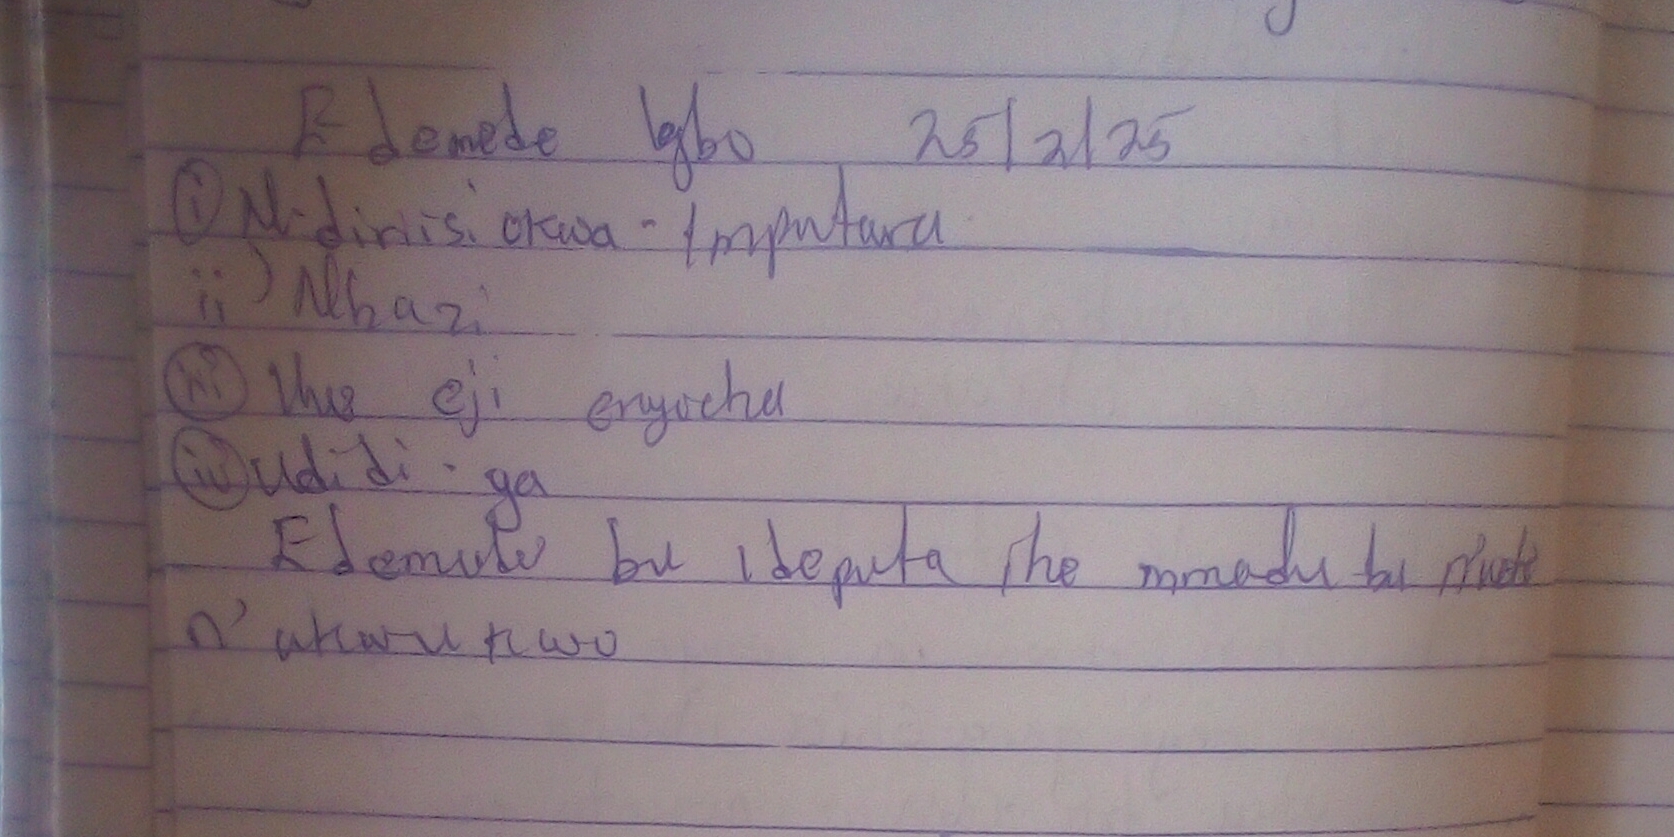 Edemede Igbo 25/2/25
(i) N-dirisi okwa - Imputara
ii) Nhazi
(iii) Ihe eji enyocha
(iv) Udidi - ga
Edemede bu ideputa ihe mmadu bu n'uche
n' akwukwo